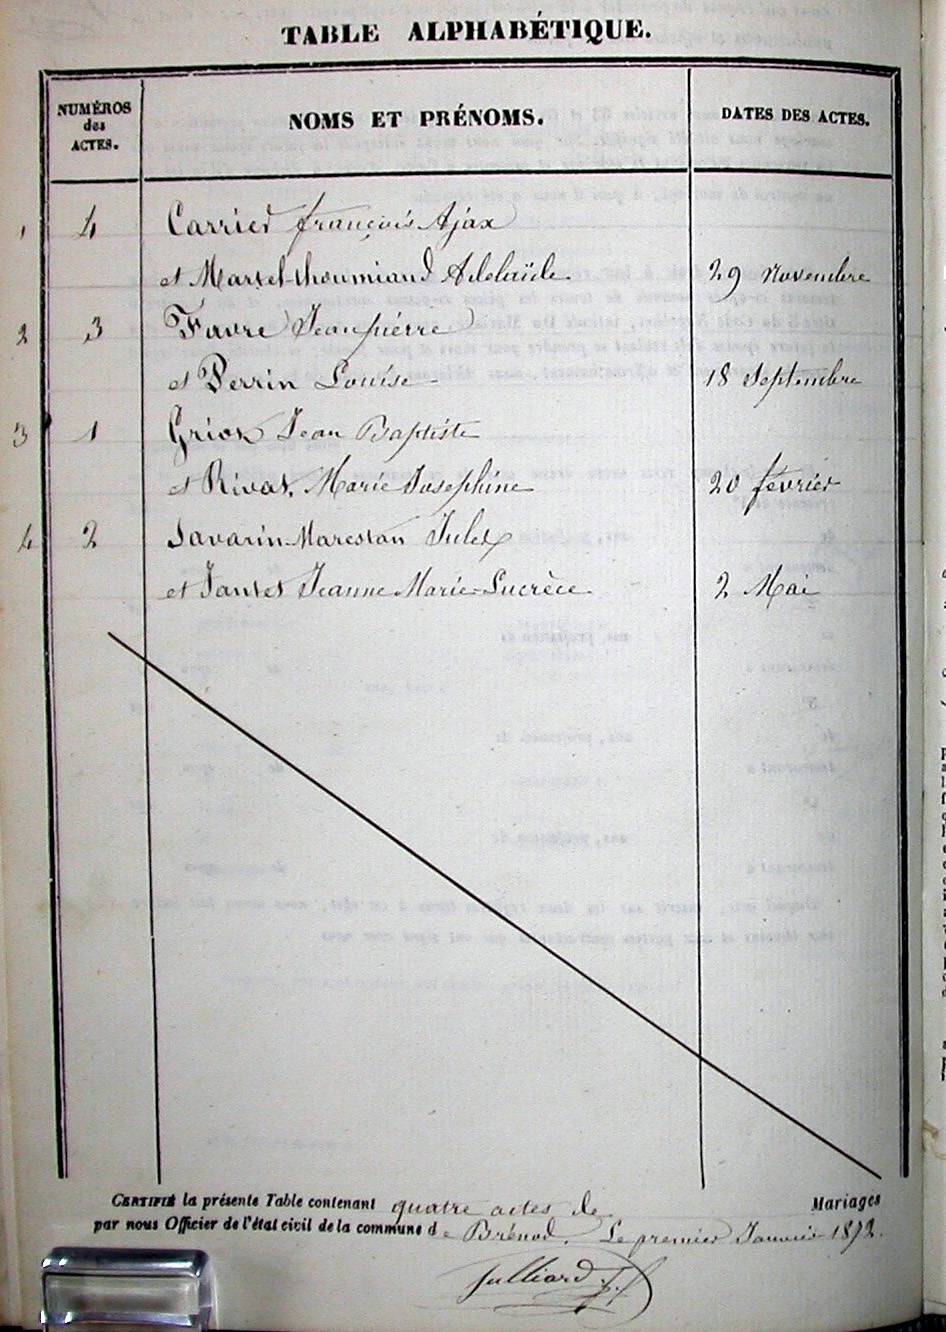 TABLE ALPHABÉTIQUE.
NUMÉROS des ACTES.
NOMS ET PRÉNOMS.
DATES DES ACTES.
1 4 Carrier François Ajax
et Martel-thoumiand Adélaïde 29 Novembre
2 3 Favre Jean pierre
et Perrin Louise 18 Septembre
3 1 Griot Jean Baptiste
et Rivat, Marie Josephine 20 février
4 2 Savarin-Marestan Jules
et Jantet Jeanne Marie-Lucrèce 2 Mai
CERTIFIÉ la présente Table contenant quatre actes de Mariages
par nous Officier de l'état civil de la commune de Brénod. Le premier Janvier 1872.
Julliard